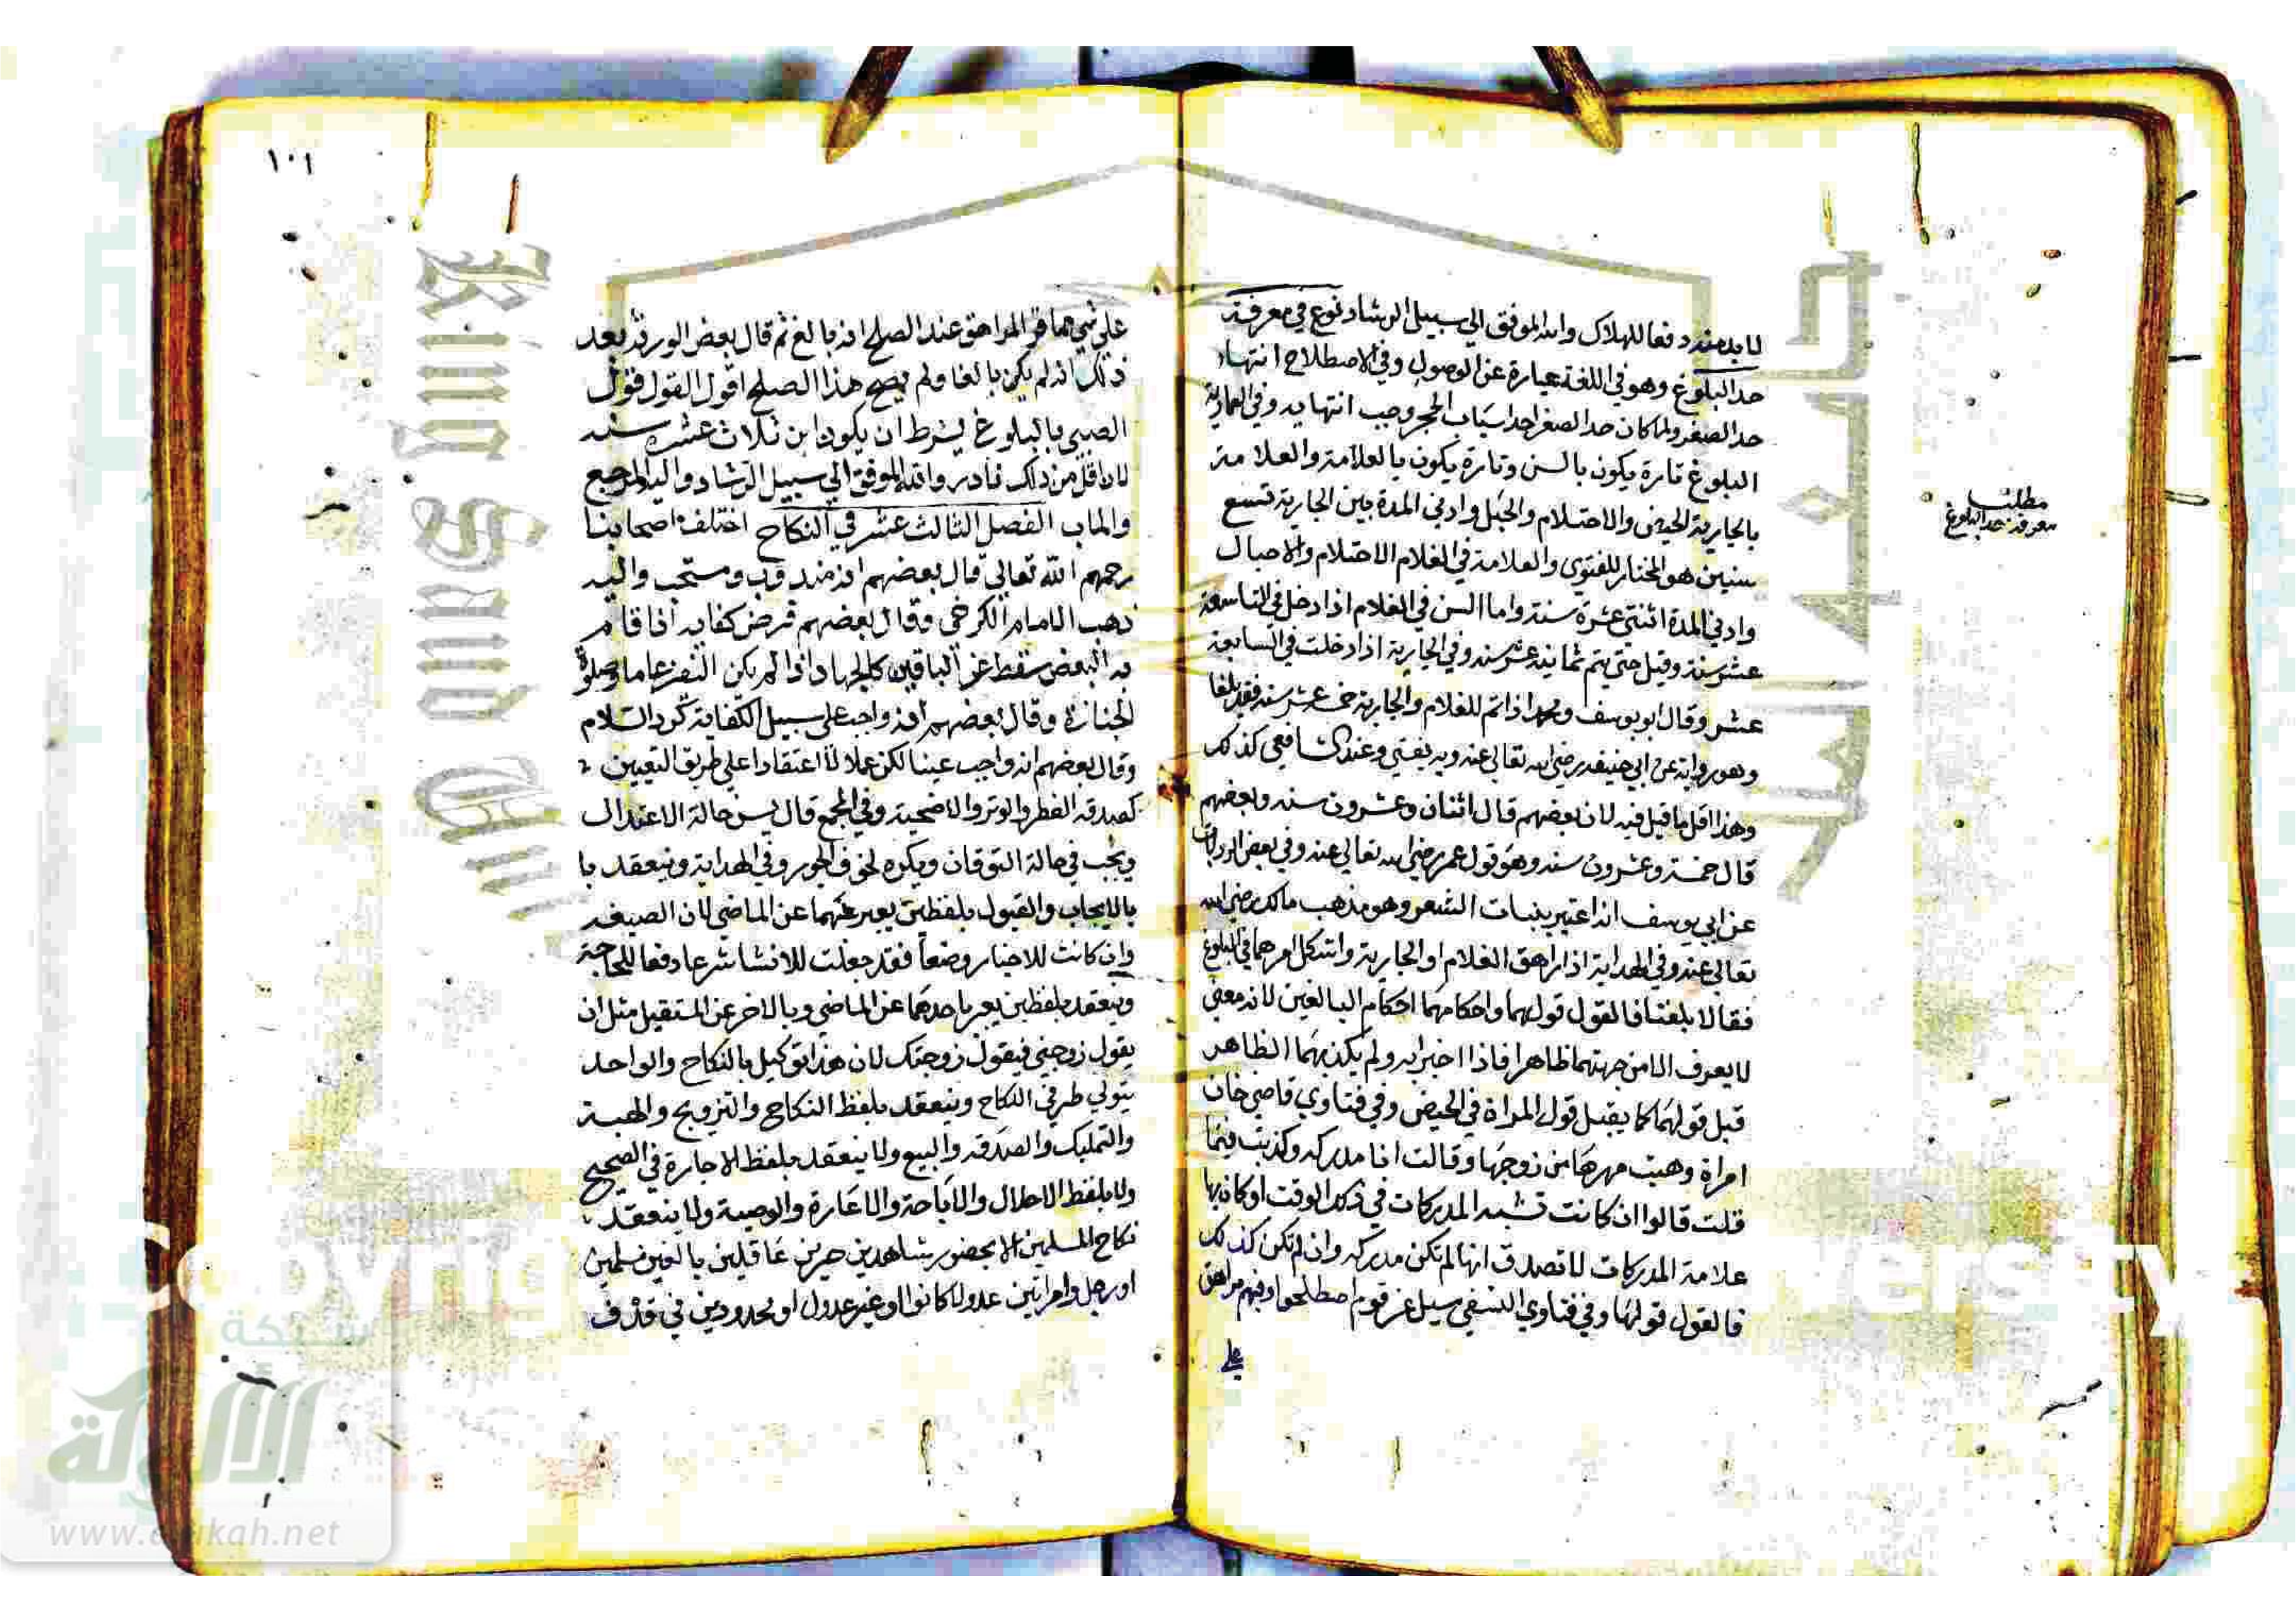 لا بد منه دفعا للهلاك والله الموفق الي سبيل الرشاد نوع في معرفة
حد البلوغ وهو في اللغة عبارة عن الوصول وفي الاصطلاح انتهاء
حد الصغر ولما كان حد الصغر احد اسباب الحجر وجب انتهايه وفي العمادية
البلوغ تارة يكون بالسن وتارة يكون بالعلامة والعلامة
بالجارية الحيض والاحتلام والحبل وادني المدة بين الجارية تسع
سنين هو المختار للفتوي والعلامة في الغلام الاحتلام والاحبال
وادني المدة اثنتي عشرة سنة واما السن في الغلام اذا دخل في التاسعة
عشر سنة وقيل حتي يتم ثمانية عشر سنه وفي الجارية اذا دخلت في السابعة
عشر وقال ابو يوسف ومحمد اذا تم للغلام والجارية خمسة عشر سنه فقد بلغا
وهو رواية عن ابي حنيفه رضي الله تعالي عنه وبه يفتي وعند الشافعي كذلك
وهذا اقل ما قيل فيه لان بعضهم قال اثنان وعشرون سنه وبعضهم
قال خمسة وعشرون سنه وهو قول عمر رضي الله تعالي عنه وفي بعض الروايات
عن ابي يوسف انه اعتبر بنبات الشعر وهو مذهب مالك رضي الله
تعالي عنه وفي الهداية اذا راهق الغلام او الجارية واشكل امرهما في البلوغ
فقالا بلغنا فالقول قولهما واحكامهما احكام البالغين لانه معني
لا يعرف الا من جهتهما ظاهرا فاذا اخبرا به ولم يكذبهما الظاهر
قبل قولهما كما يقبل قول المراة في الحيض وفي فتاوي قاضي خان
امراة وهبت مهرها من زوجها وقالت انا مدركه وكذبت فيما
قلت قالوا ان كانت تشبه المدركات في ذلك الوقت او كان بها
علامة المدركات لا تصدق انها لم تكن مدركه وان لم تكن كذلك
فالقول قولها وفي فتاوي النسفي سيل عن قوم اصطلحوا وفيهم مراهق
علي
مطلب
معرفة حد البلوغ
١٠١
علي شي مما فر المراهق عند الصلح انه بالغ ثم قال بعض الورثة بعد
ذلك انه لم يكن بالغا ولم يصح هذا الصلح اقول القول قول
الصبي بالبلوغ بشرط ان يكون ابن ثلاث عشرة سنه
لان اقل من ذلك نادر والله الموفق الي سبيل الرشاد واليه المرجع
والماب الفصل الثالث عشر في النكاح اختلف اصحابنا
رحمهم الله تعالي قال بعضهم انه مندوب ومستحب واليه
ذهب الامام الكرخي وقال بعضهم فرض كفايه اذا قام
به البعض سقط عن الباقين كالجهاد اذا لم يكن النفر عاما وصلوة
الجنازة وقال بعضهم انه واجب علي سبيل الكفاية كرد السلام
وقال بعضهم انه واجب عينا لكن عملا لا اعتقادا علي طريق التعيين
كصدقه الفطر والوتر والاضحية وفي المجمع قال يسن حالة الاعتدال
ويجب في حالة التوقان ويكره لخوف الجور وفي الهداية وينعقد با
بالايجاب والقبول بلفظين يعبر عنهما عن الماضي لان الصيغه
وان كانت للاخبار وضعا فقد جعلت للانشا شرعا دفعا للحاجة
وينعقد بلفظين يعبر باحدهما عن الماضي وبالاخر عن المستقبل مثل ان
يقول زوجني فيقول زوجتك لان هذا توكيل بالنكاح والواحد
يتولي طرفي النكاح وينعقد بلفظ النكاح والتزويج والهبة
والتمليك والصدقه والبيع ولا ينعقد بلفظ الاجارة في الصحيح
ولا بلفظ الاحلال والاباحة والاعارة والوصية ولا ينعقد
نكاح المسلمين الا بحضور شاهدين حرين عاقلين بالغين مسلمين
او رجل وامراتين عدولا كانوا او غير عدول او محدودين في قذف
شبكة
الألوكة
www.alukah.net